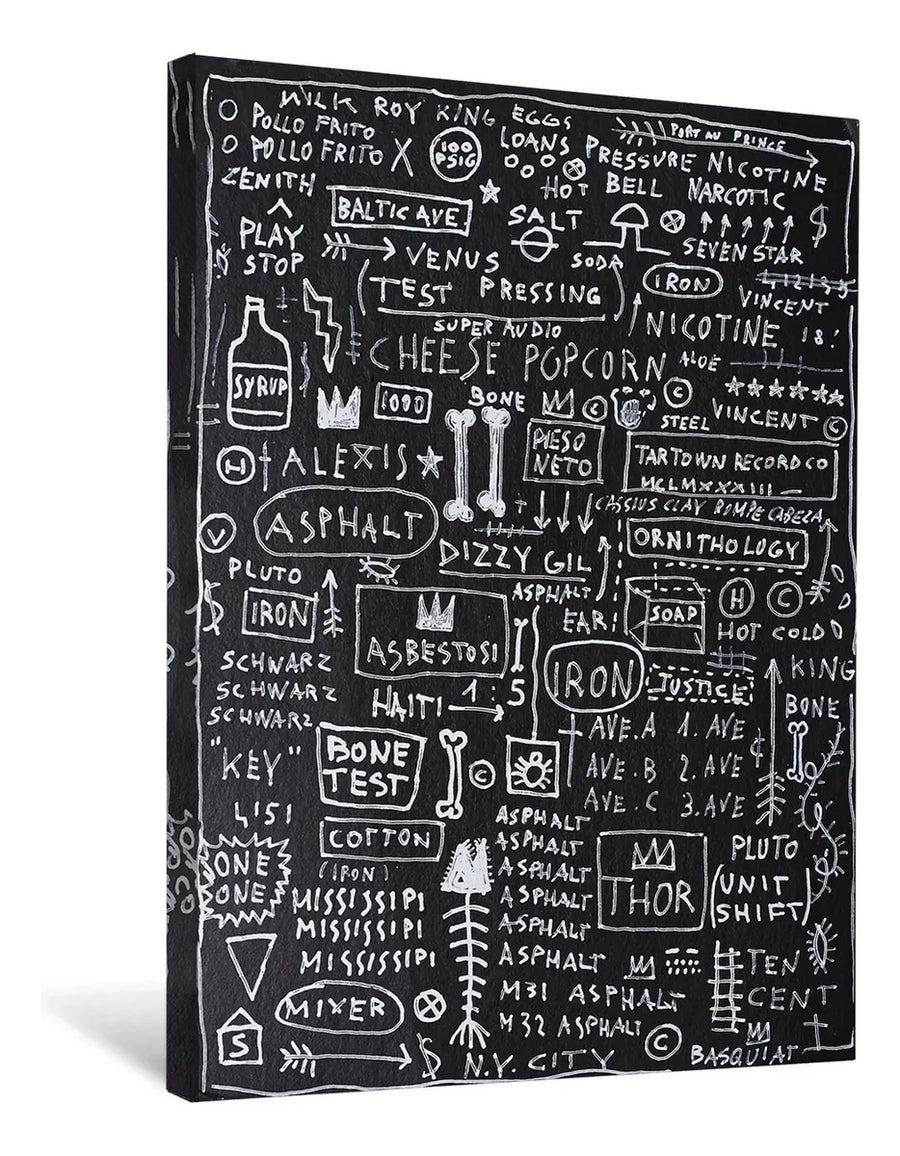 MILK ROY KING EGGS
POLLO FRITO
LOANS
PORT AU PRINCE
POLLO FRITO X
100
PSIG
PRESSURE NICOTINE
ZENITH
HOT BELL NARCOTIC
BALTIC AVE
SALT
$
PLAY
STOP
VENUS
SODA
SEVEN STAR
TEST PRESSING
IRON
12135
VINCENT
SUPER AUDIO
NICOTINE 18:
CHEESE POPCORN
ALOE
SYRUP
1000
BONE
©
©
STEEL
VINCENT ©
PIESO
NETO
TARTOWN RECORD CO
MCLMXXXIII
H
ALEXIS
CASSIUS CLAY ROMPE CABEZA
V
ASPHALT
ORNITHOLOGY
DIZZY GIL
PLUTO
ASPHALT
$
IRON
EAR:
SOAP
H ©
HOT COLD
ASBESTOSI
SCHWARZ
SCHWARZ
SCHWARZ
HAITI 1:5
IRON
JUSTICE
KING
BONE
AVE.A 1. AVE
"KEY"
BONE
TEST
©
AVE.B 2. AVE
AVE.C 3. AVE
4151
COTTON
ASPHALT
ASPHALT
ASPHALT
ASPHALT
ASPHALT
ASPHALT
ONE
ONE
(IRON)
THOR
PLUTO
(UNIT
SHIFT)
MISSISSIPI
MISSISSIPI
MISSISSIPI
TEN
CENT
MIXER
M31 ASPHALT
M32 ASPHALT
S
$ N.Y. CITY
©
BASQUIAT